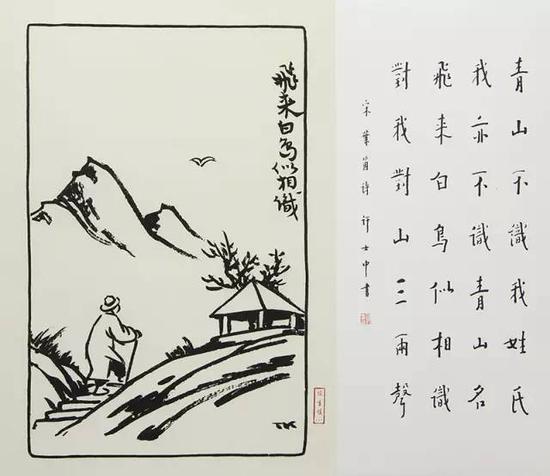 飛来白鳥似相識
TK
青山不識我姓氏
我亦不識青山名
飛来白鳥似相識
對我對山三兩聲
宋葉詩許士中書